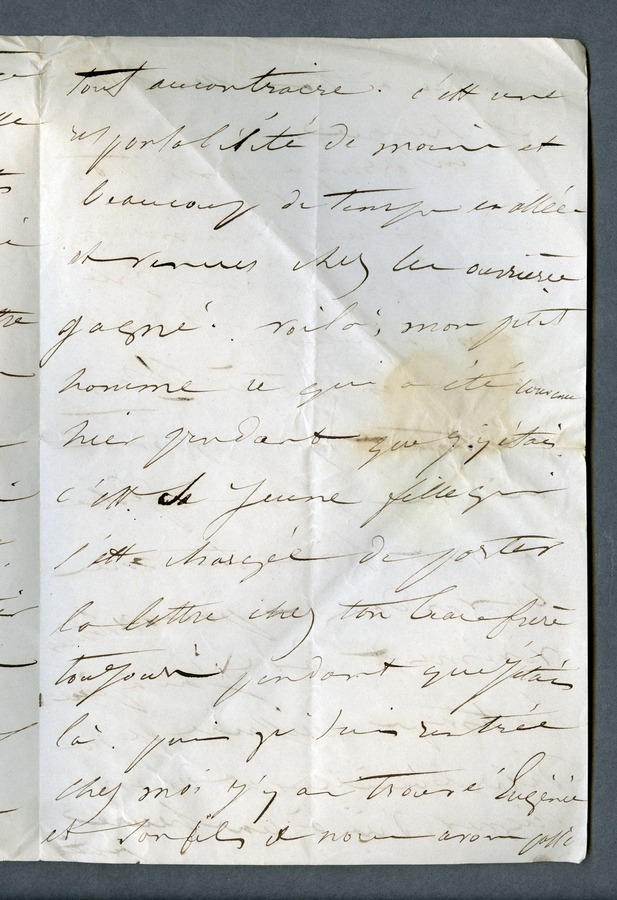 tout aucontraire. c'ett une
résponsabilité de moin et
beaucoup de temps en allée
et venues chez les ouvrière
gagné. voila, mon ptit
homme ce qui a été
hier pendant que j'y étais
c'ett la jeune fille qui
s'ett chargée de porter
la lettre chez ton beaufrère
toujour pendant que j'étais
là. puis je suis rentrée
chez moi j'y ai trouvé Eugénie
et son fils & nous avons passé